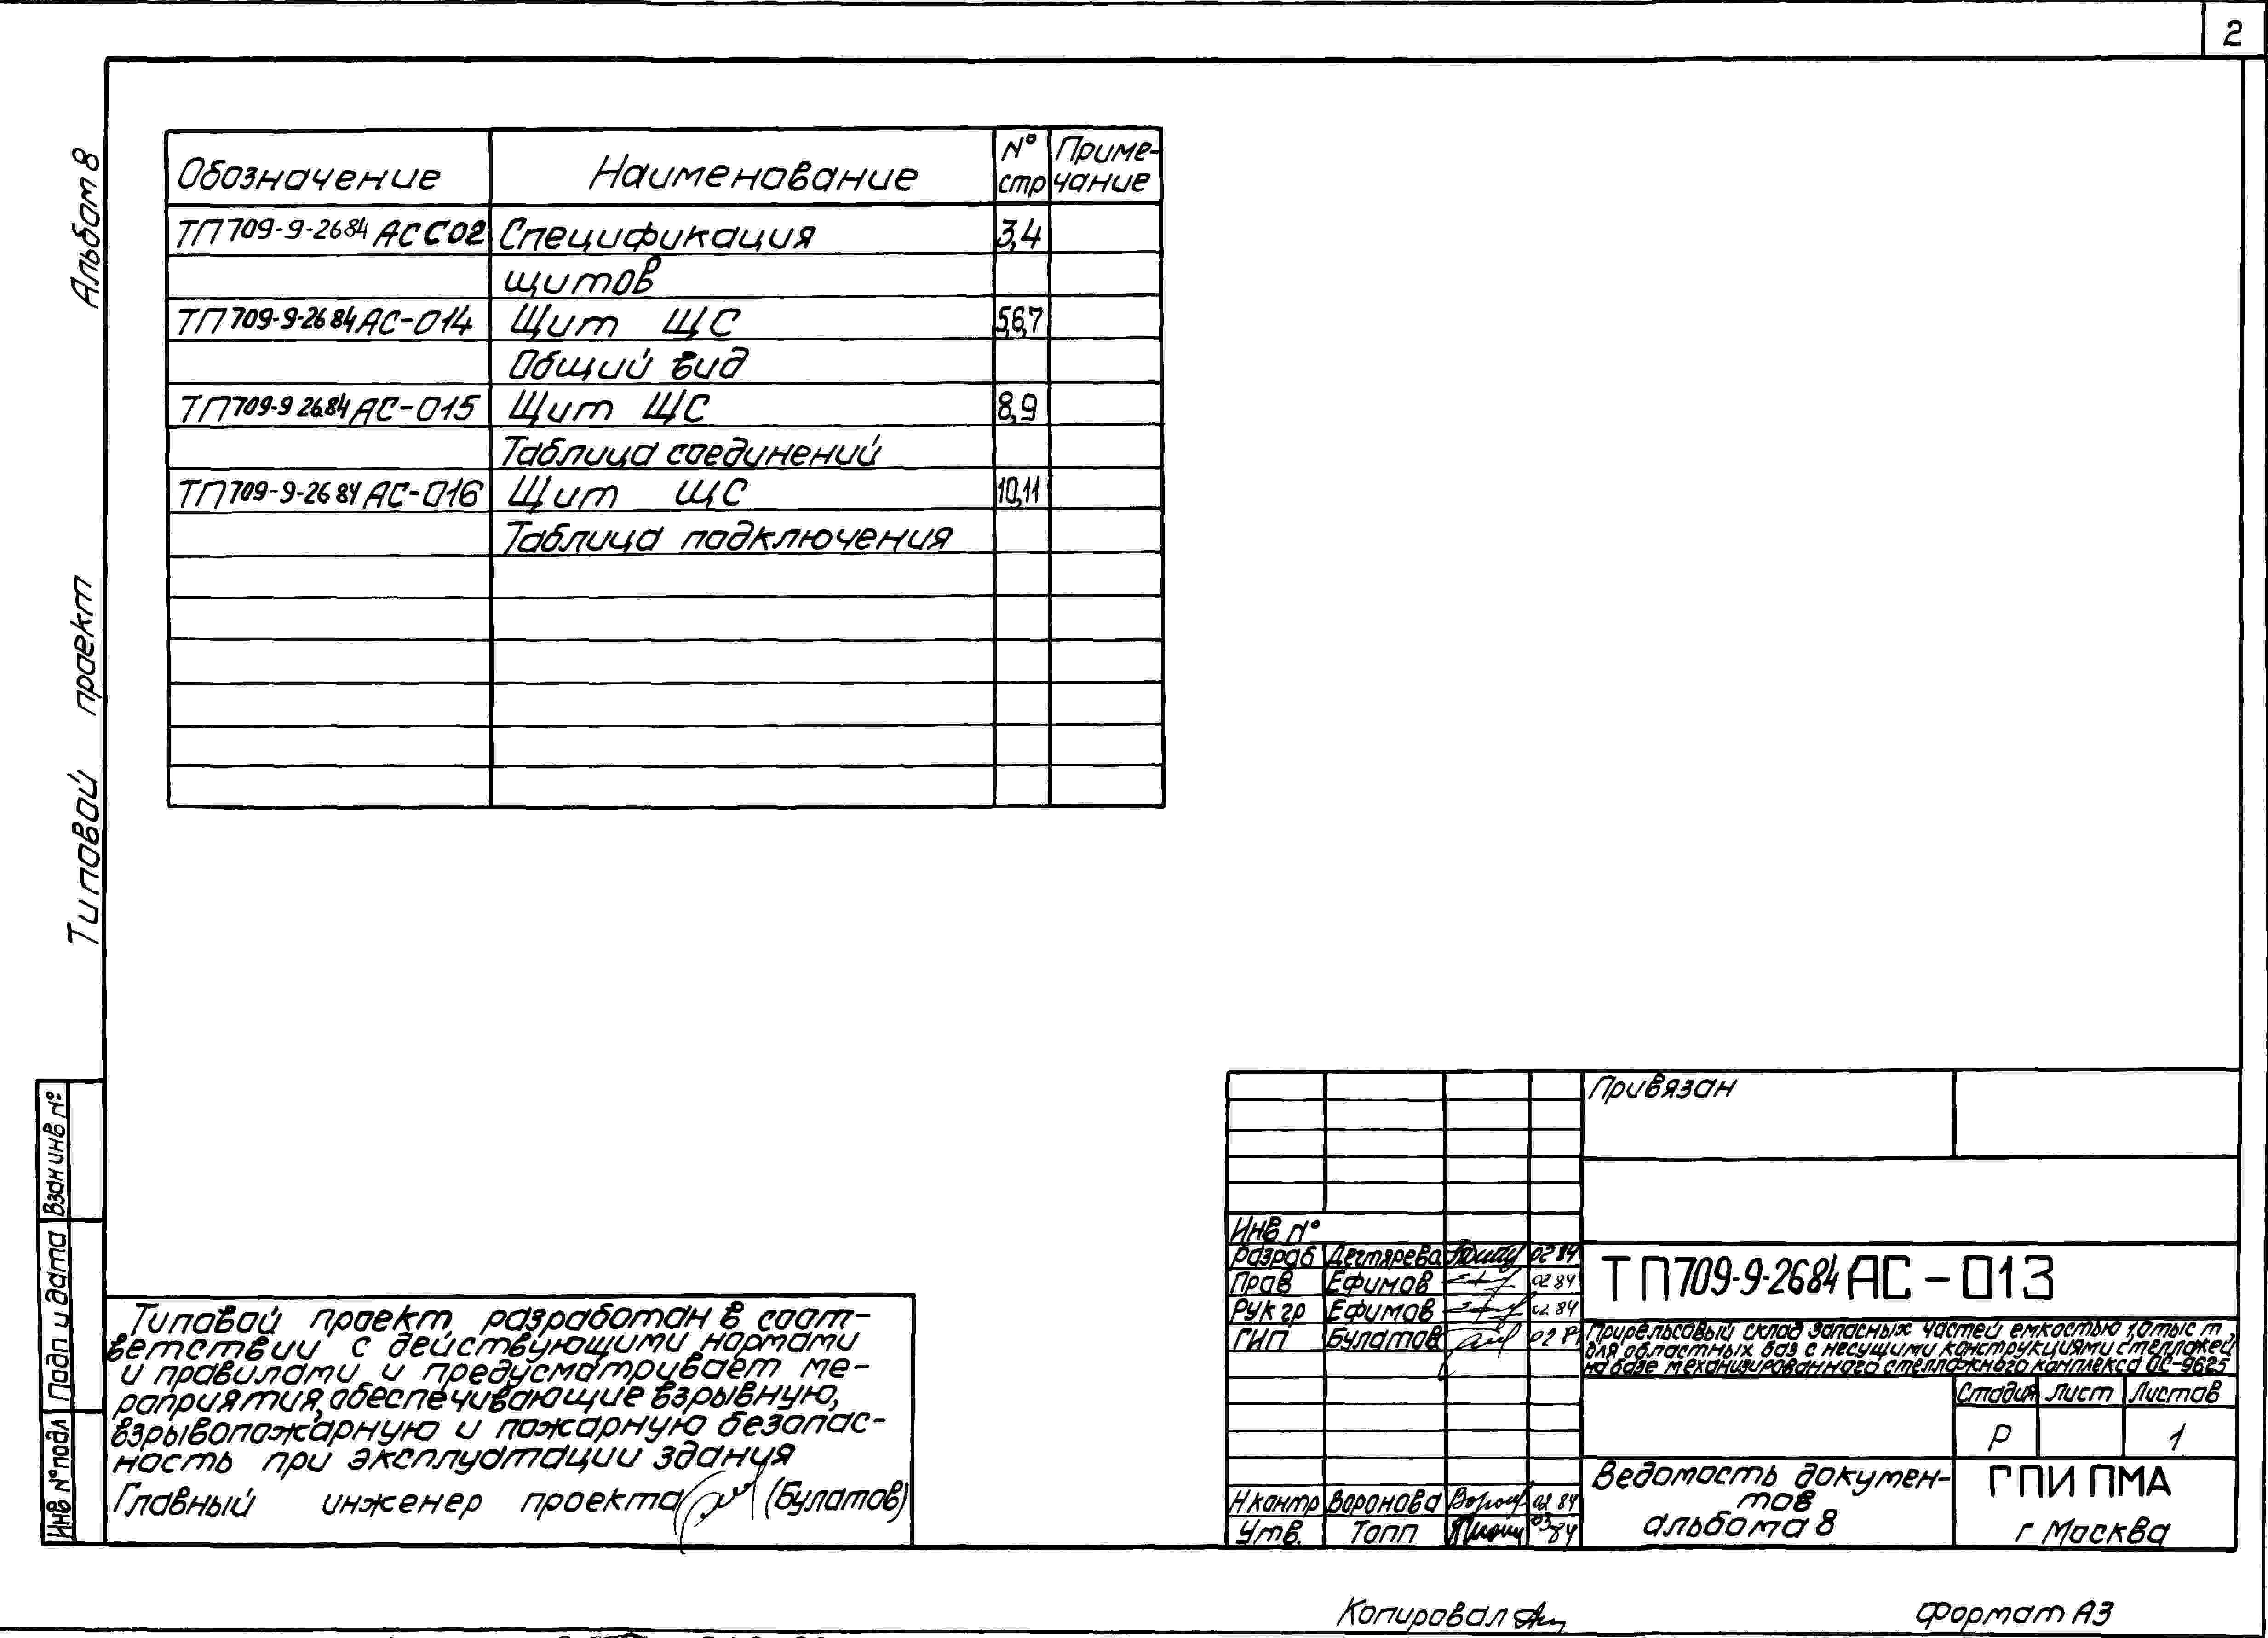 2
Альбом 8
Типовой проект
Обозначение Наименование № стр Приме-чание
ТП 709-9-26 84 АС С02 Спецификация 3,4
щитов
ТП 709-9-26 84 АС-014 Щит ЩС 5,6,7
Общий вид
ТП 709-9 26.84 АС-015 Щит ЩС 8,9
Таблица соединений
ТП 709-9-26 84 АС-016 Щит ЩС 10,11
Таблица подключения
Взам инв №
Подп и дата
Инв № подл
Типовой проект разработан в соот-
ветствии с действующими нормами
и правилами и предусматривает ме-
роприятия, обеспечивающие взрывную,
взрывопожарную и пожарную безопас-
ность при эксплуатации здания
Главный инженер проекта (Булатов)
Привязан
Инв №
Разраб Дегтярева 02 84
Пров Ефимов 02 84
Рук гр Ефимов 02 84
ГИП Булатов 02 84
Н контр Воронова 02 84
Утв. Топп 03 84
ТП 709-9-26 84 АС-013
Прирельсовый склад запасных частей емкостью 1,0 тыс т,
для областных баз с несущими конструкциями стеллажей,
на базе механизированного стеллажного комплекса ОС-9625
Стадия Лист Листов
Р 1
Ведомость докумен-
тов
альбома 8
ГПИ ПМА
г Москва
Копировал
Формат А3